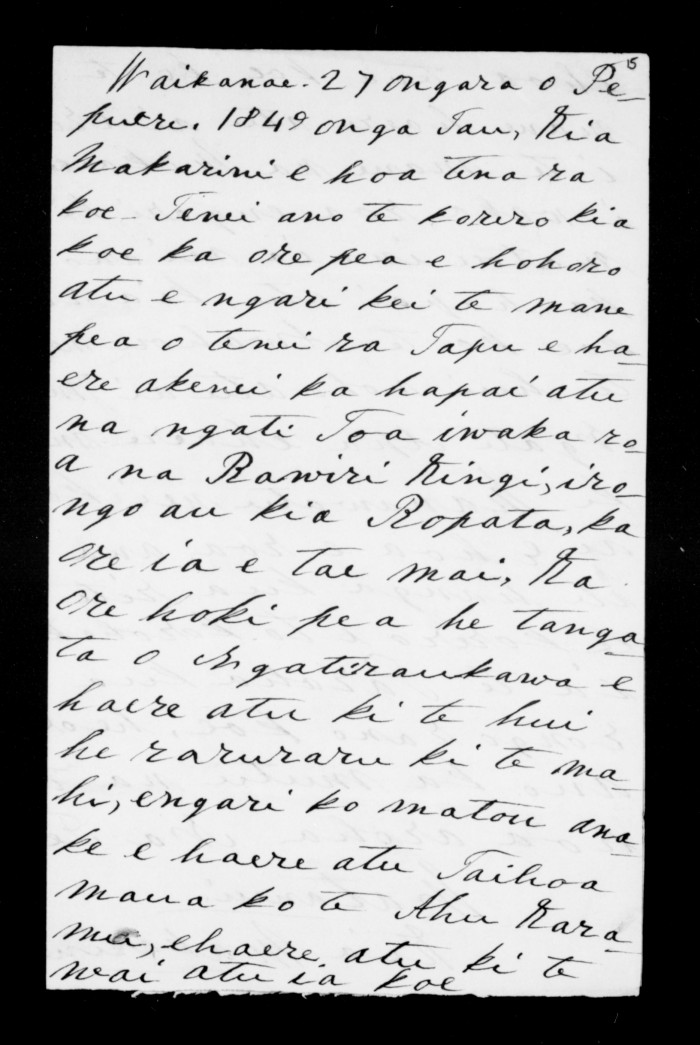 15
Waikanae. 27 ongara o Pe-
pueri. 1849 onga Tau, Kia
Makarini e hoa tena ra
koe. Tenei ano te korero kia
koe ka ore pea e hohoro
atu e ngari kei te mane
pea o tenei ra Tapu e ha-
ere akenei ka hapai atu
na ngati Toa iwaka ro-
a na Rawiri Kingi, iro-
ngo au kia Ropata, ka
ore ia e tae mai, Ka
ore hoki pea he tanga-
ta o Ngatiraukawa e
haere atu ki te hui
he raruraru ki te ma-
hi, engari ko matou ana-
ke e haere atu Taihoa
maua ko te Ahu Kara-
mu, ehaere atu ki te
wai atu ia koe